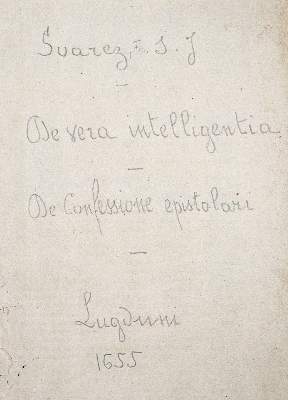 Svarez, S. J
—
De vera intelligentia
—
De Confessione epistolari
—
Lugduni
1655